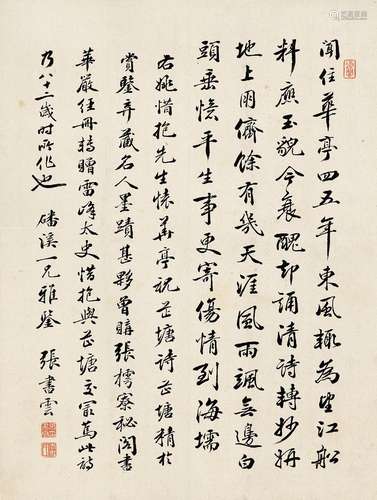 闻住華亭四五年東風輒為望江船
料應玉貌今衰醜却誦清詩轉妙妍
地上朋儕餘有幾天涯風雨颯無邊白
頭垂憶平生事更寄傷情到海壖
右姚惜抱先生懷華亭祝芷塘詩芷塘精於
賞鑒弆藏名人墨蹟甚夥曾購張樗寮秘閣書
華嚴經冊轉贈雷峰太史惜抱與芷塘交最篤此詩
乃八十二歲時所作也 磻溪一兄雅鑒 張書雲